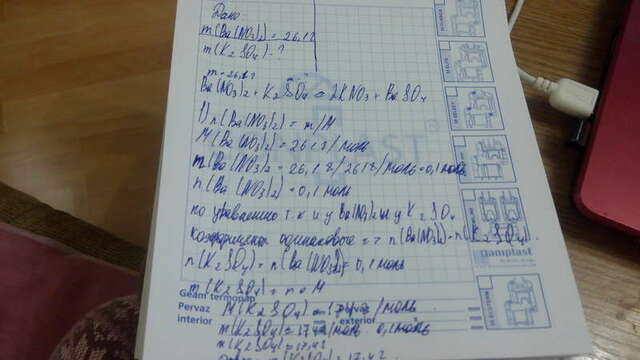 Дано
m(Ba(NO3)2 = 26,1г
m(K2SO4) - ?
m = 26,1г
Ba(NO3)2 + K2SO4 = 2KNO3 + BaSO4
1) n(Ba(NO3)2) = m/M
M(Ba(NO3)2) = 261г/моль
m(Ba(NO3)2 = 26,1г/261г/моль = 0,1моль
n(Ba(NO3)2) = 0,1моль
по уравнению т.к и у Ba(NO3)2 и у K2SO4
коэффициенты одинаковые => n(Ba(NO3)2) = n(K2SO4).
n(K2SO4) = n(Ba(NO3)2) = 0,1моль
m(K2SO4) = n • M
M(K2SO4) = 174г/моль.
m(K2SO4) = 174г/моль • 0,1моль
m(K2SO4) = 17,4г
m(K2SO4) = 17,4г
Geam termopan
Pervaz interior
exterior
Gamplast